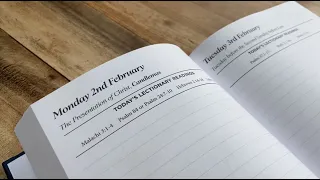 Monday 2nd February
The Presentation of Christ. Candlemas
TODAY'S LECTIONARY READINGS
Malachi 3:1-4 Psalm 84 or Psalm 24:7-10 Hebrews
Tuesday 3rd February
TODAY'S LECTIONARY READINGS